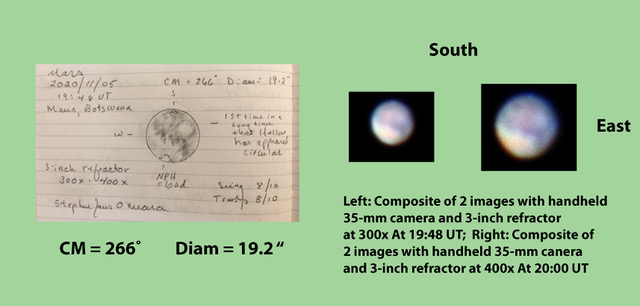 Mars
2020/11/05
19:48 UT
Maun, Botswana
CM = 266° Diam = 19.2"
S
W
1st time in a
long time
that Hellas
has appeared
circular
3-inch refractor
300x - 400x
NPH
cloud
Seeing 8/10
Transp 8/10
Stephen James O'Meara
CM = 266° Diam = 19.2“
South
East
Left: Composite of 2 images with handheld
35-mm camera and 3-inch refractor
at 300x At 19:48 UT; Right: Composite of
2 images with handheld 35-mm canera
and 3-inch refractor at 400x At 20:00 UT